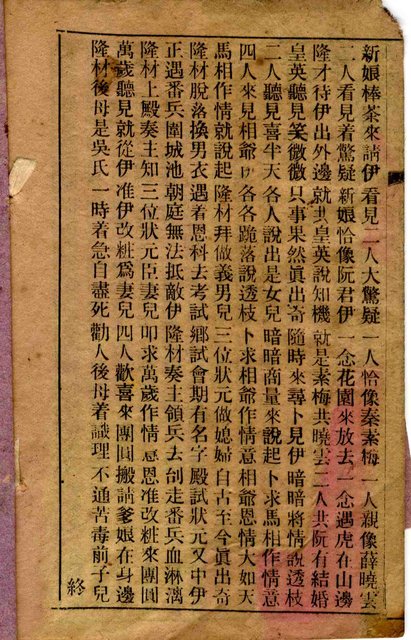 新娘棒茶來請伊 看見二人大驚疑 一人恰像秦素梅 一人親像薛曉雲
二人看見着驚疑 新娘恰像阮君伊 一念花園來放去 一念遇虎在山邊
隆才待伊出外邊 就共皇英說知機 就是素梅共曉雲 二人共阮有結婚
皇英聽見笑微微 只事果然眞出奇 隨時來尋卜見伊 暗暗將情說透枝
二人聽見喜半天 各人說出是女兒 暗暗商量來說起 卜求馬相作情意
四人來見相爺吓 各各跪落說透枝 卜求相爺作情意 相爺恩情大如天
馬相作情就說起 隆材拜做義男兒 三位狀元做媳婦 自古至今眞出奇
隆材脫落換男衣 遇着恩科去考試 鄉試會期有名字 殿試狀元又中伊
正遇番兵圍城池 朝庭無法抵敵伊 隆材奏主領兵去 刣走番兵血淋漓
隆材上殿奏主知 三位狀元臣妻兒 叩求萬歲作情意 恩准改粧來團圓
萬歲聽見就從伊 准伊改粧爲妻兒 四人歡喜來團圓 搬請爹娘在身邊
隆材後母是吳氏 一時着急自盡死 勸人後母着識理 不通苦毒前子兒
終